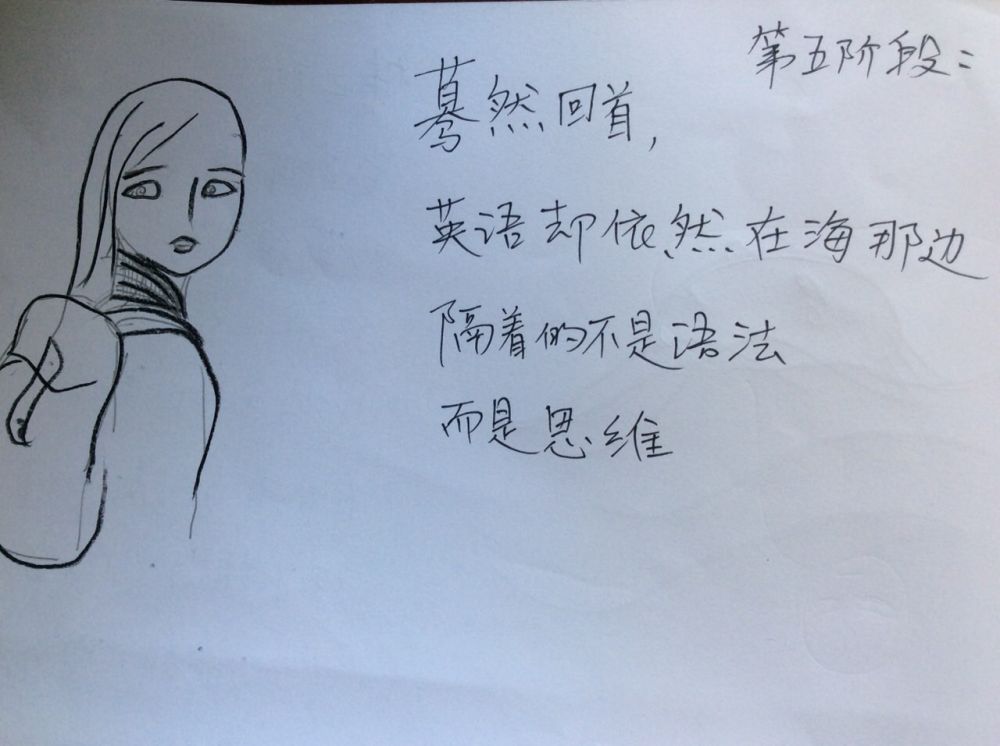 第五阶段：
蓦然回首，
英语却依然在海那边
隔着的不是语法
而是思维